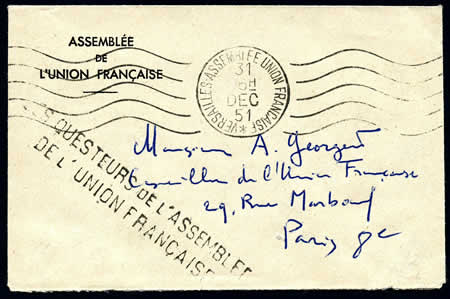 ASSEMBLÉE
DE
L'UNION FRANÇAISE
VERSAILLES-ASSEMBLÉE UNION FRANÇAISE *
31
DEC
51
LES QUESTEURS DE L'ASSEMBLÉE
DE L'UNION FRANÇAISE
Monsieur A. Georget
Conseiller de l'Union Française
29, Rue Marbeuf
Paris 8e